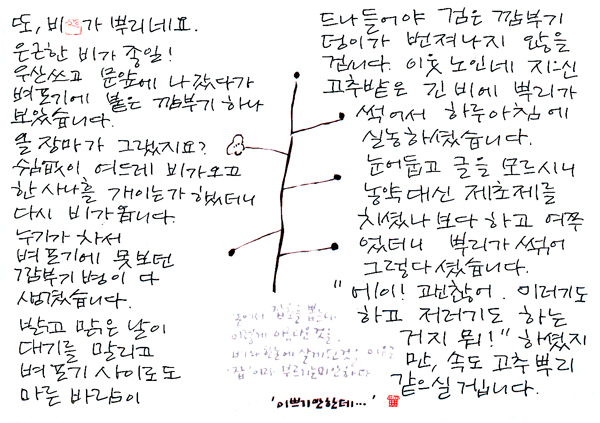 또, 비가 뿌리네요.
은근한 비가 종일!
우산쓰고 문앞에 나갔다가
벼포기에 붙은 깜부기 하나
보았습니다.
올 장마가 그랬지요?
쉬임없이 여드레 비가오고
한 사나흘 개이는가 했더니
다시 비가 옵니다.
누기가 차서
벼포기에 못보던
깜부기 병이 다
생겼습니다.
밝고 맑은 날이
대기를 말리고
벼포기 사이로도
마른 바람이
드나들어야 검은 깜부기
덩이가 번져나지 않을
겁니다. 이웃 노인네 지으신
고추밭은 긴 비에 뿌리가
썩어서 하루아침에
실농하셨습니다.
눈어둡고 글을 모르시니
농약대신 제초제를
치셨나 보다 하고 여쭈
었더니 뿌리가 썩어
그렇다셨습니다.
"에이! 괜찮어. 이러기도
하고 저러기도 하는
거지 뭐!" 하셨지
만, 속도 고추뿌리
같으실 겁니다.
이렇게
부르기는 미안하다
'이쁘기만한데...'